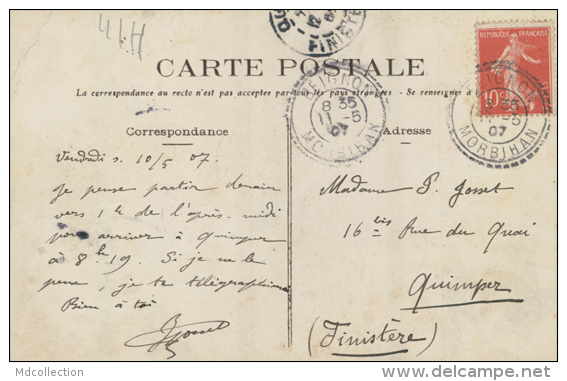 FINISTE
CARTE POSTALE
La correspondance au recto n'est pas acceptée par tous les pays étrangers. — Se renseigner à
Correspondance
Vendredi s. 10/5 07.
Je pense partir demain
vers 1h de l'après-midi
pour arriver à Quimper
à 8h 19. Si je ne le
peux, je te télégraphierai
Bien à toi
Josset
REPUBLIQUE FRANÇAISE
10
BEIGNON
8 35
11-5
07
MORBIHAN
BEIGNON
8 35
11-5
07
MORBIHAN
Adresse
Madame P. Josset
16 bis Rue du Quai
Quimper
(Finistère)
Mdcollection
www.delcampe.net